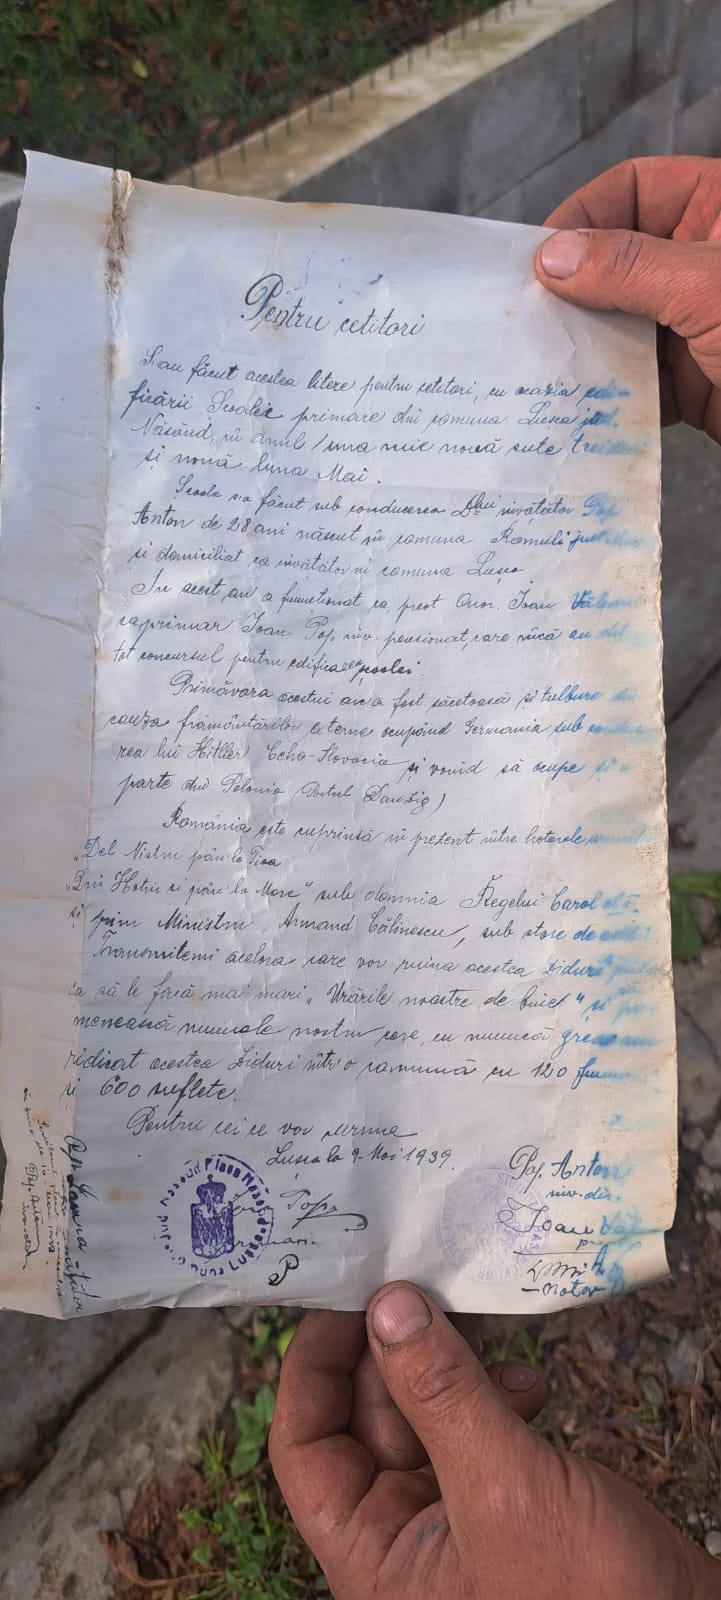 Pentru cetitori
S'au făcut acestea litere pentru cetitori, cu ocazia edi-
ficării Școalei primare din comuna Lușca jud.
Năsăud, în anul una mie nouă sute trei
și nouă luna Mai.
Școala s'a făcut sub conducerea Dlui învățător Pop
Anton de 28 ani născut în comuna Romuli jud.
și domiciliat ca învățător în comuna Lușca
In acest an a funcționat ca preot Onor. Ioan
ca primar Ioan Pop înv. pensionat, care încă au dat
tot concursul pentru edificarea școalei.
Primăvara acestui an a fost săcetoasă și tulbure din
cauza frământărilor externe ocupând Germania sub conduce
rea lui Hittler Ceho-Slovacia și voind să ocupe și o
parte din Polonia (Portul Danzig)
România este cuprinsă în prezent între hotarele
"Del Nistru pân' la Tisa
"Din Hotin si pân' la Mare" sub domnia Regelui Carol al II.
și prim Ministru Armand Călinescu, sub stare de
Transmitem acelora care vor ruina acestea ziduri
ca să le facă mai mari "Urările noastre de bine" și po
menească numele nostru care, cu muncă grea am
ridicat acestea ziduri într'o comună cu 120
si 600 suflete.
Pentru cei ce vor urma
Lușca la 9 Mai 1939.
Pop Anton
înv. dir.
Ioan Pop
primar
Ioan
notar